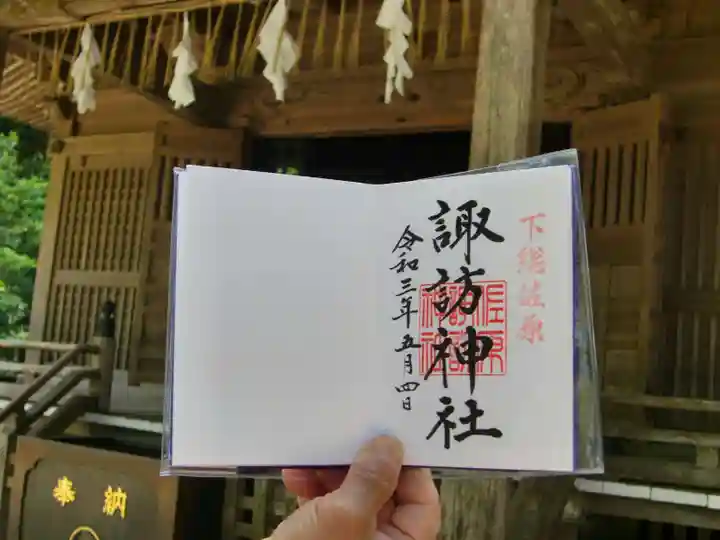 下総佐原
諏訪神社
佐原
諏訪
神社
令和三年五月四日
奉納